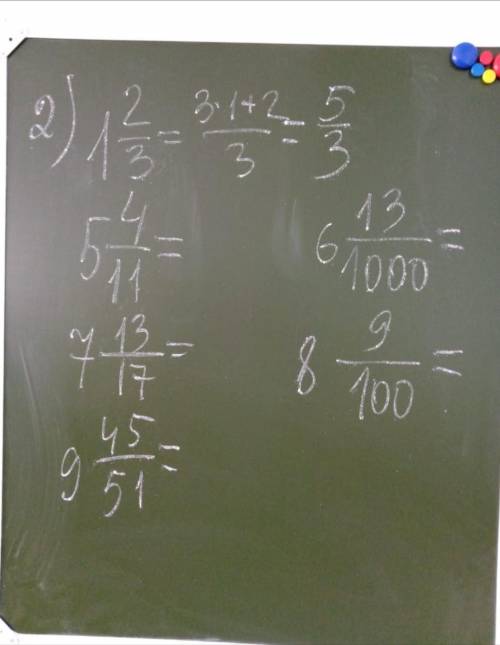 2) 1 2/3 = (3·1+2)/3 = 5/3
5 4/11 =
6 13/1000 =
7 13/17 =
8 9/100 =
9 45/51 =